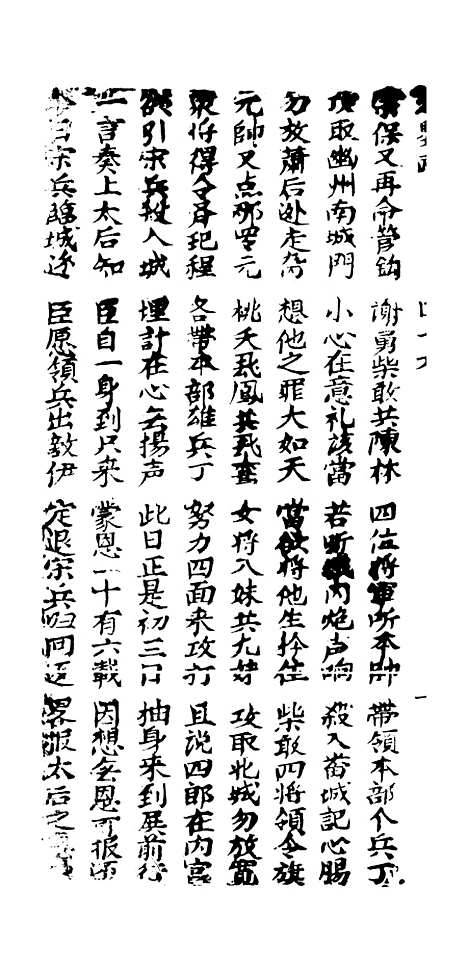 宗保又再令管鈎 謝勇柴敢共陳林 四位将軍听本帥 帶領本部个兵丁
攻取幽州南城門 小心在意礼該當 若听城内炮声响 殺入番城記心腸
勿放蕭后処走奔 想他之罪大如天 當欲将他生扲住 柴敢四将領令旗
元帥又点哪罗元 桃夭巩鳳共巩查 女将八妹共九妹 攻取北城勿放寬
眾将得令各起程 各帶本部雄兵丁 努力四面来攻打 且說四郎在内宮
欲引宋兵殺入城 埋計在心云揚声 此日正是初三日 抽身来到殿前行
一言奏上太后知 臣自一身到只来 蒙恩一十有六載 因想無恩可报
今日宋兵臨城迩 臣愿領兵出敦伊 定退宋兵归回返 畧报太后之